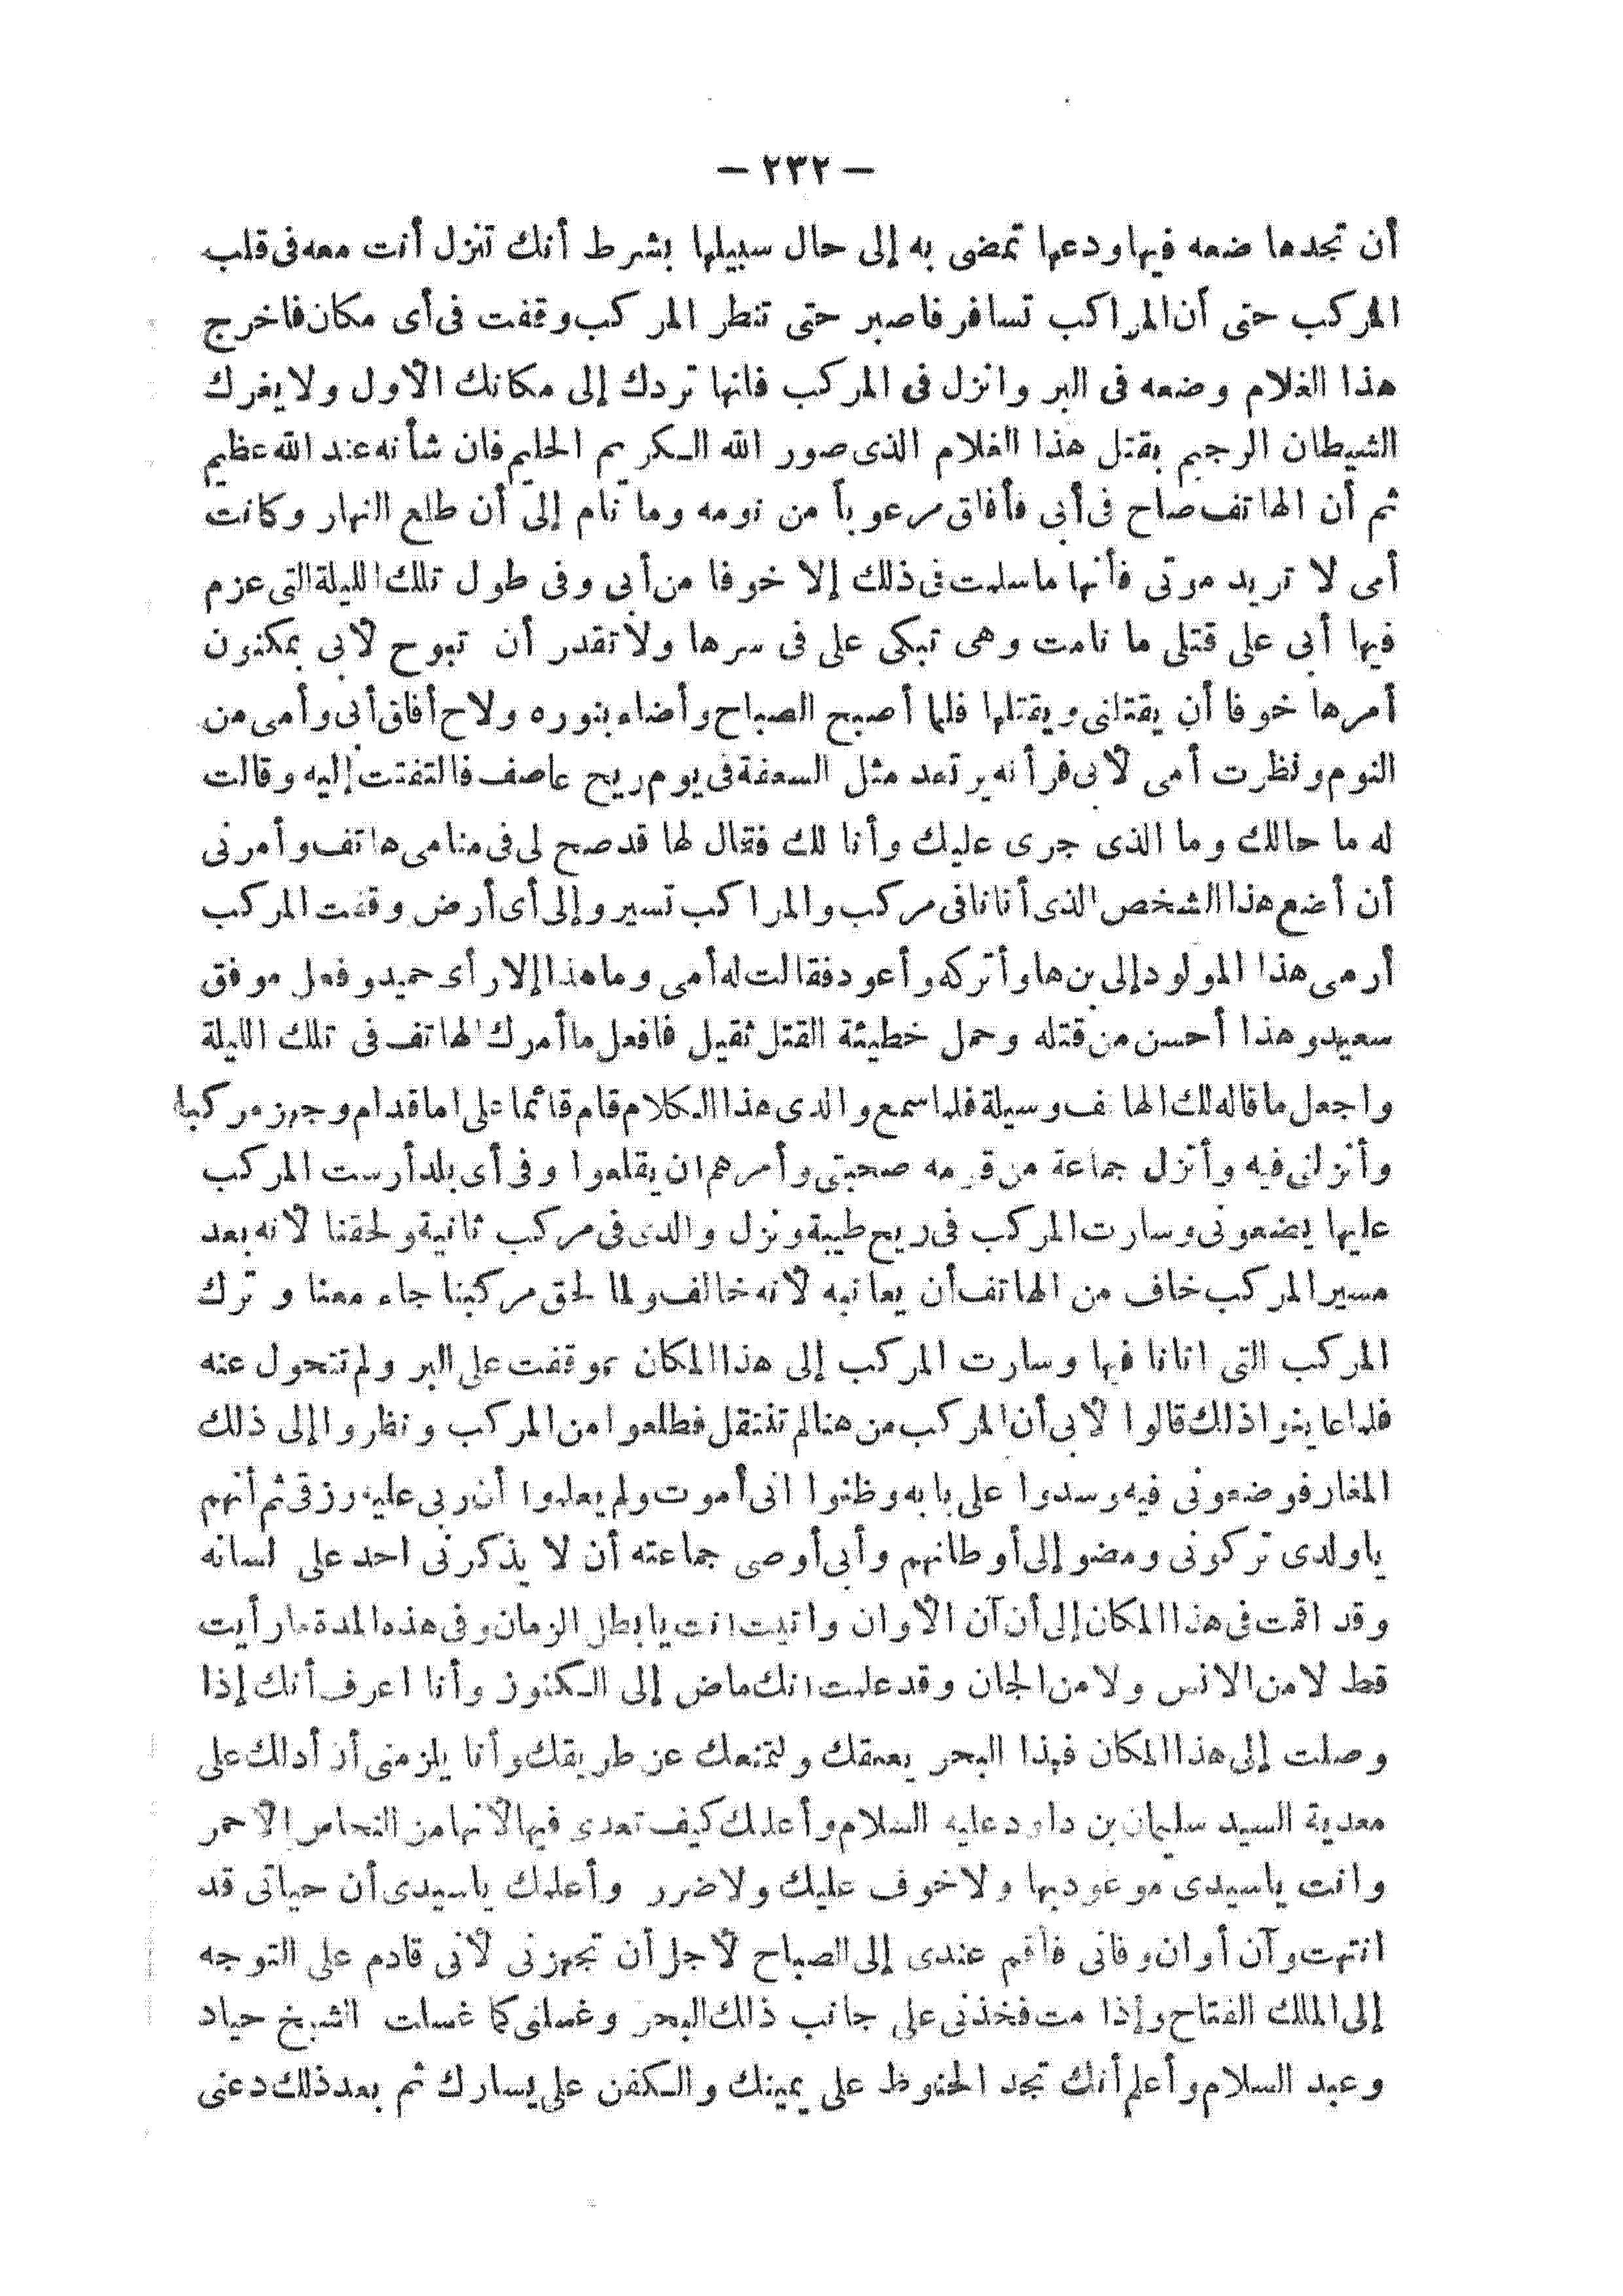 — ٢٣٢ —
أن تجدها ضعه فيها ودعها تمضى به إلى حال سبيلها بشرط أنك تنزل أنت معه فى قلب
المركب حتى أن المراكب تسافر فاصبر حتى تنظر المركب وقفت فى أى مكان فاخرج
هذا الغلام وضعه فى البر وانزل فى المركب فانها تردك إلى مكانك الأول ولا يغرك
الشيطان الرجيم بقتل هذا الغلام الذى صور الله الكريم الحليم فان شأنه عند الله عظيم
ثم أن الهاتف صاح فى أبى فأفاق مرعوباً من نومه وما نام إلى أن طلع النهار وكانت
أمى لا تريد موتى فأنها ماسلمت فى ذلك إلا خوفا من أبى وفى طول تلك الليلة التى عزم
فيها أبى على قتلى ما نامت وهى تبكى على فى سرها ولا تقدر أن تبوح لأبى بمكنون
أمرها خوفا أن يقتلنى ويقتلها فلما أصبح الصباح وأضاء بنوره ولاح أفاق أبى وأمى من
النوم ونظرت أمى لأبى فرأته يرتعد مثل السعفة فى يوم ريح عاصف فالتفتت إليه وقالت
له ما حالك وما الذى جرى عليك وأنا لك فقال لها قد صح لى فى منامى هاتف وأمرنى
أن أضع هذا الشخص الذى أتانا فى مركب والمراكب تسير وإلى أى أرض وقفت المركب
أرمى هذا المولود إلى بن ها وأتركه وأعود فقالت له أمى وما هذا إلا رأى حميد وفعل موفق
سعيد وهذا أحسن من قتله وحمل خطيئة القتل ثقيل فافعل ما أمرك الهاتف فى تلك الليلة
واجعل ما قاله لك الهاتف وسيلة فلما سمع والدى هذا الكلام قام قائما على اماقدام وجهز مركبا
وأنزلنى فيه وأنزل جماعة من قومه صحبتى وأمرهم ان يقلعوا وفى أى بلد أرست المركب
عليها يضعونى وسارت المركب فى ريح طيبة ونزل والدى فى مركب ثانية ولحقنا لأنه بعد
مسير المركب خاف من الهاتف أن يعاتبه لأنه خالف ولما لحق مركبنا جاء معنا وترك
المركب التى اتانا فيها وسارت المركب إلى هذا المكان ووقفت على البر ولم تتحول عنه
فلما عاينوا ذلك قالوا لأبى أن المركب من هنا لم تنتقل فطلعوا من المركب ونظروا إلى ذلك
المغار فوضعونى فيه وسدوا على بابه وظنوا انى أموت ولم يعلموا أن ربى عليه رزقى ثم أنهم
ياولدى تركونى ومضو إلى أوطانهم وأبى أوصى جماعته أن لا يذكرنى احد على لسانه
وقد اقمت فى هذا المكان إلى أن آن الأوان واتيت انت يا بطل الزمان وفى هذه المدة ما رأيت
قط لا من الانس ولا من الجان وقد علمت انك ماض إلى الكنوز وأنا اعرف أنك إذا
وصلت إلى هذا المكان فهذا البحر يعيقك ولتمنعك عن طريقك وأنا يلزمنى أن أدلك على
معدية السيد سليمان بن داود عليه السلام وأعلمك كيف تعدى فيها لأنها من النحاس الأحمر
وانت ياسيدى موعود بها ولا خوف عليك ولا ضرر وأعلمك ياسيدى أن حياتى قد
انتهت وآن أوان وفاتى فأقم عندى إلى الصباح لأجل أن تجهزنى لأنى قادم على التوجه
إلى الملك الفتاح وإذا مت فخذنى على جانب ذلك البحر وغسلنى كما غسلت الشيخ جياد
وعبد السلام وأعلم أنك تجد الحنوط على يمينك والكفن على يسارك ثم بعد ذلك دعنى